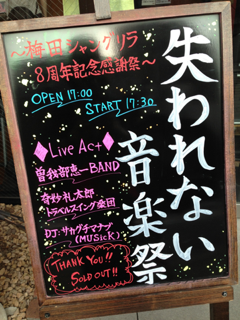 失われない
音楽祭
～梅田シャングリラ
8周年記念感謝祭～
OPEN 17:00
START 17:30
♦Live Act♦
曽我部恵一BAND
奇妙礼太郎
トラベルスイング楽団
DJ:サカグチマナブ
(MUSICK)
THANK YOU!!
SOLD OUT!!